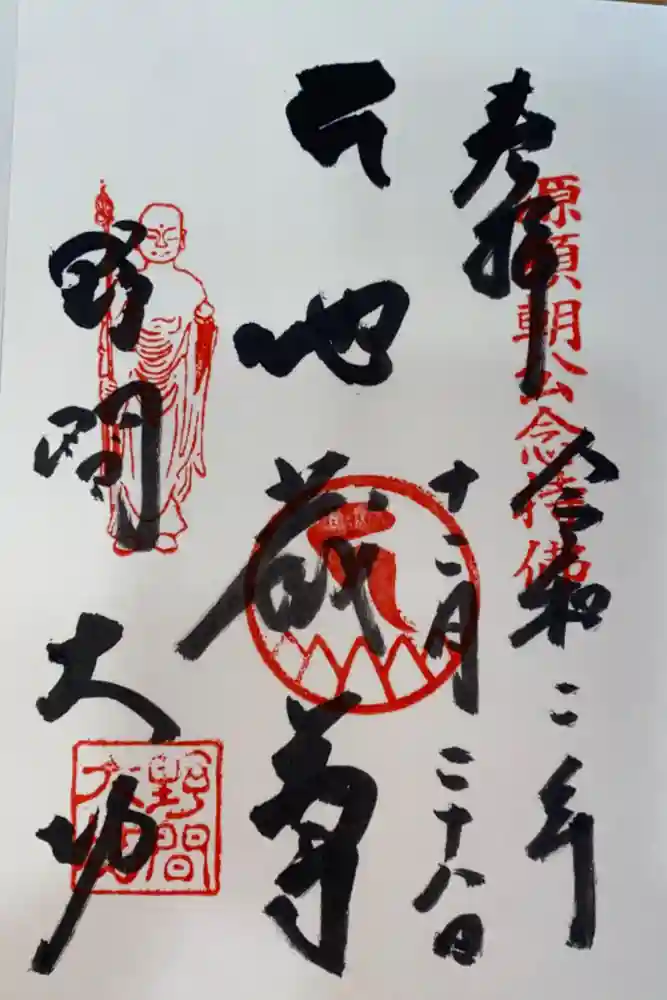 奉拝
源頼朝公念持佛
令和二年
十二月二十八日
公地蔵尊
野間大坊
野間
大坊